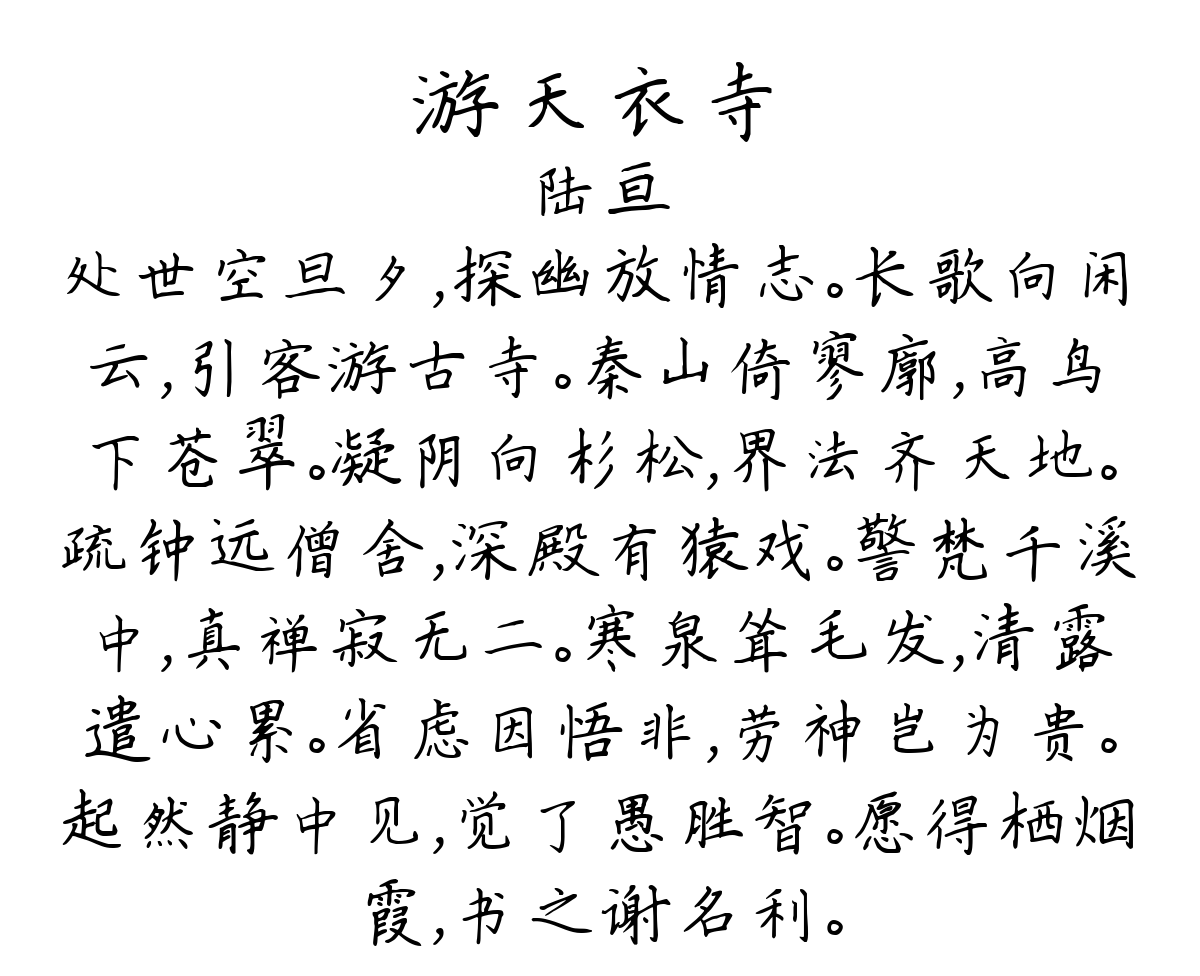 游天衣寺
陆亘
处世空旦夕,探幽放情志。长歌向闲
云,引客游古寺。秦山倚寥廓,高鸟
下苍翠。凝阴向杉松,界法齐天地。
疏钟远僧舍,深殿有猿戏。警梵千溪
中,真禅寂无二。寒泉耸毛发,清露
遣心累。省虑因悟非,劳神岂为贵。
起然静中见,觉了愚胜智。愿得栖烟
霞,书之谢名利。